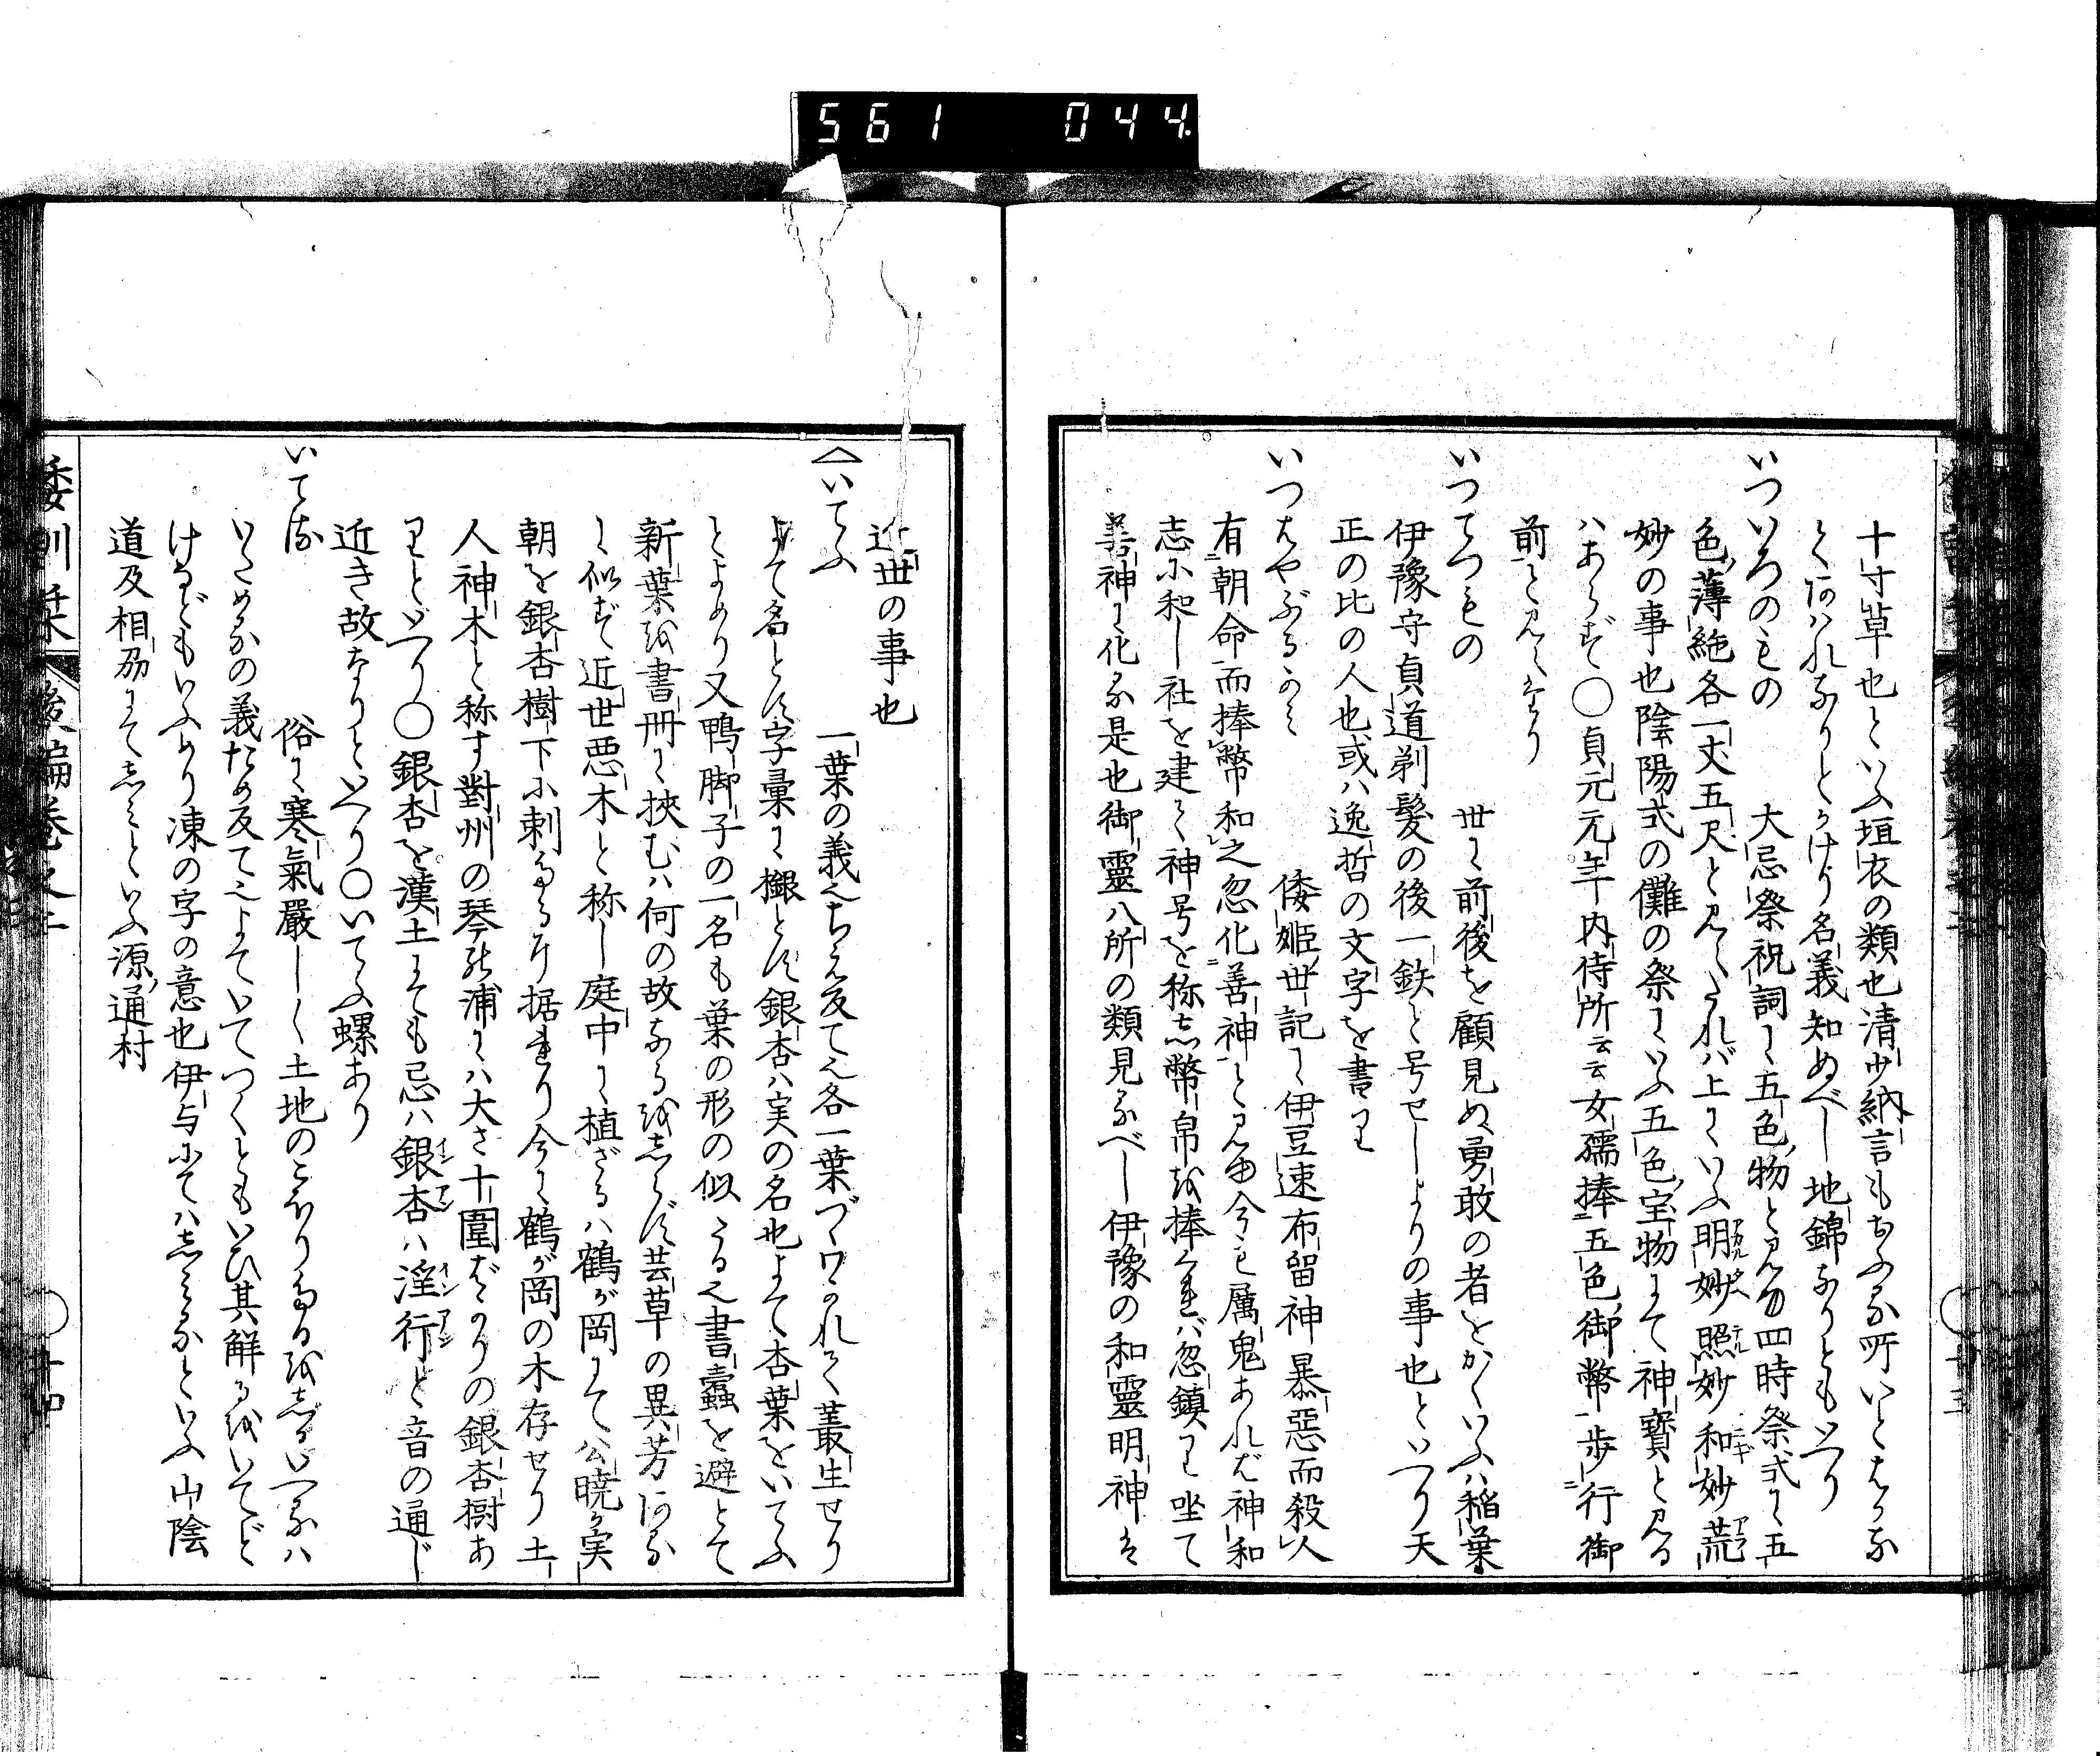 561 044.
十寸草也といふ垣衣の類也清少納言もあふな所いとはかな
くあはれなりとかけり名義知ぬべし地錦なりともいへり
いついろのもの 大忌祭祝詞に五色物と見ゆ四時祭式に五
色薄絁各一丈五尺と見えたれば上にいふ明妙照妙和妙荒
妙の事也陰陽式の儺の祭にいふ五色宝物にて神寶と見る
はあらず○貞元元年内侍所云云女孺捧五色御幣一歩行御
前と見えたり
いつてつもの 世に前後を顧見ぬ勇敢の者をかくいふは稲葉
伊豫守貞道剃髮の後一鉄と号せしよりの事也といへり天
正の比の人也或は逸哲の文字を書り
いつはやぶるかみ 倭姫世記に伊豆速布留神暴惡而殺人
有朝命而捧幣和之忽化善神と見ゆ今も厲鬼あれば神和
志小和し社を建て神号を称し幣帛を捧くれば忽鎮り坐て
善神に化る是也御靈八所の類見るべし伊豫の和靈明神は
近世の事也
いてふ 一葉の義也ちえ反て也各一葉づゝわかれて叢生せり
よて名とす字彙に櫬とす銀杏は実の名也よて杏葉をいてふ
とよめり又鴨脚子の一名も葉の形の似たる也書蠹を避とて
新葉を書冊に挾むは何の故なるをしらず芸草の異芳あるに
似ず近世悪木と称し庭中に植ざるは鶴が岡にて公暁が実
朝を銀杏樹下に刺たる所据れり今に鶴が岡の木存せり土
人神木と称す對州の琴の浦には大さ十圍ばかりの銀杏樹あ
りといへり○銀杏を漢土にても忌は銀杏は淫行と音の通じ
近き故なりといへり○いてふ螺あり
いてる 俗に寒氣嚴しく土地のこほりたるをしるいへるは
いためるの義ため反て也よていてつくともいひ其解るをいてど
けなどもいふめり凍の字の意也伊与にてはしみるといふ山陰
道及相刕にてしみといふ源通村
倭訓栞 後編巻之二